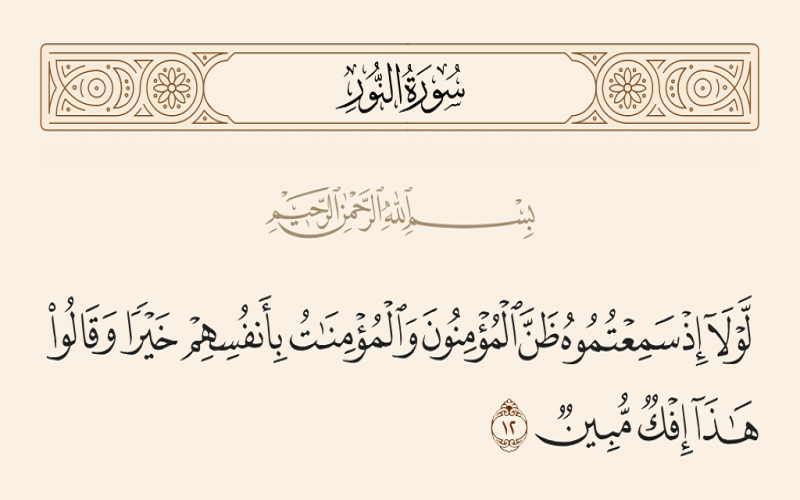 سُورَةُ النُّورِ
بِسْمِ اللَّهِ الرَّحْمَٰنِ الرَّحِيمِ
لَّوْلَآ إِذْ سَمِعْتُمُوهُ ظَنَّ ٱلْمُؤْمِنُونَ وَٱلْمُؤْمِنَٰتُ بِأَنفُسِهِمْ خَيْرًا وَقَالُوا۟
هَٰذَآ إِفْكٌ مُّبِينٌ ١٢